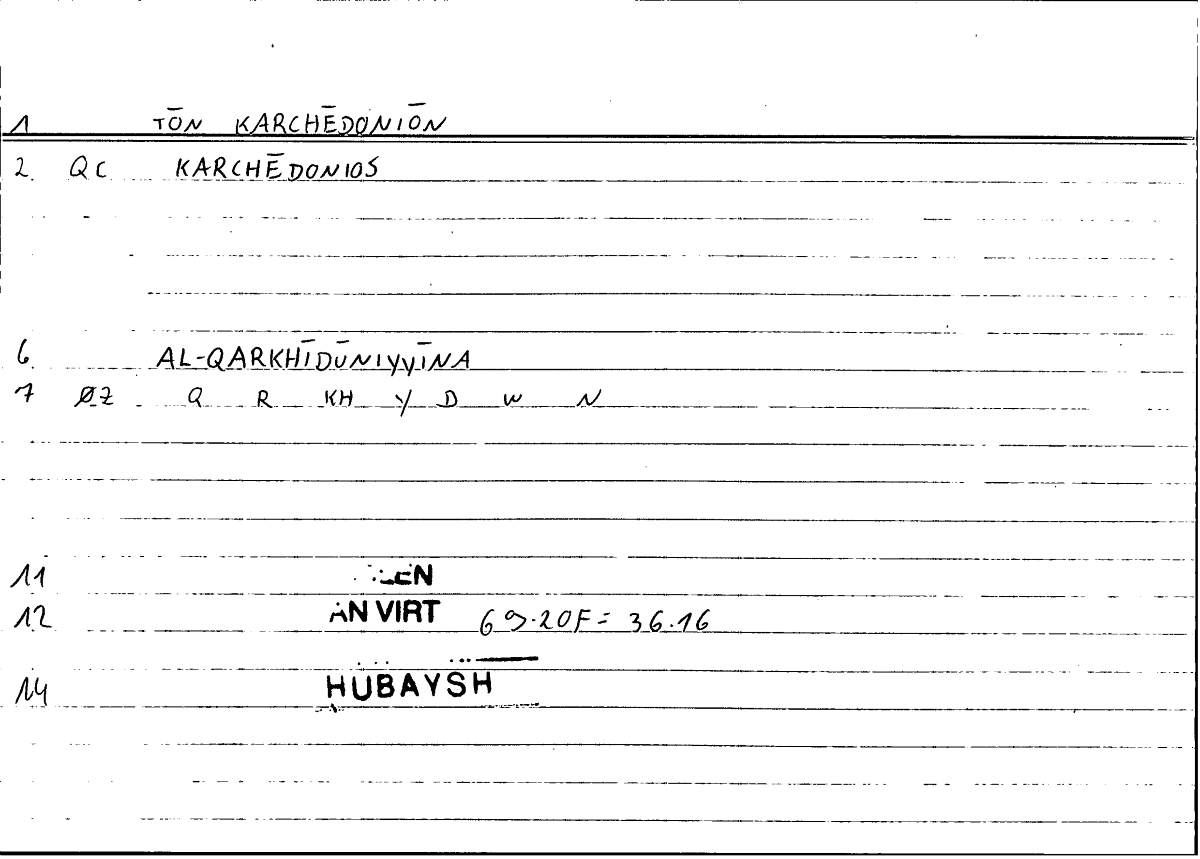 1 TŌN KARCHĒDONIŌN
2. QC KARCHĒDONIOS
6 AL-QARKHĪDŪNIYYĪNA
7 ØZ Q R KH Y D W N
11
12 AN VIRT 69.20F = 36.16
14 ḤUBAYSH